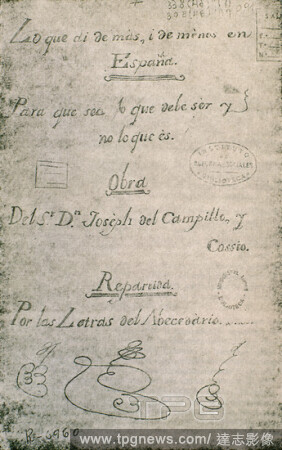 Lo que ai de màs, i de mènos en
España.
Para que sea lo que debe sér y
no lo que ès.
Obra
Del Sr. Dn. Josèph del Campillo, y
Cossio.
Repartida
Por las Letras del Abecedario.
INSTITUTO
BIBLIOTECA
R. 6960
TPG
www.tpgnews.com/達志影像